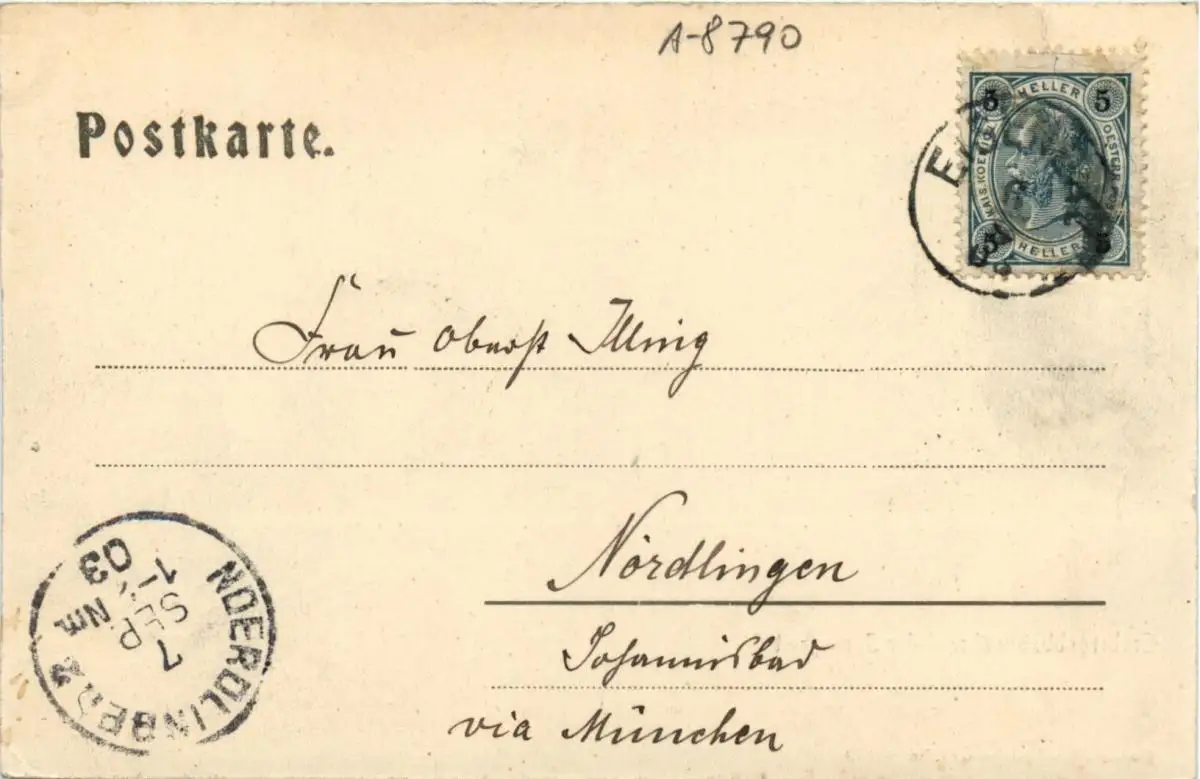 A-8790
Postkarte.
5 HELLER 5
KAIS. KOENIG.
OESTERR. POST
5 HELLER 5
Frau Oberst Illing
Nördlingen
Johannisbad
via München
NOERDLINGEN 2
7
SEP.
Nm.
03